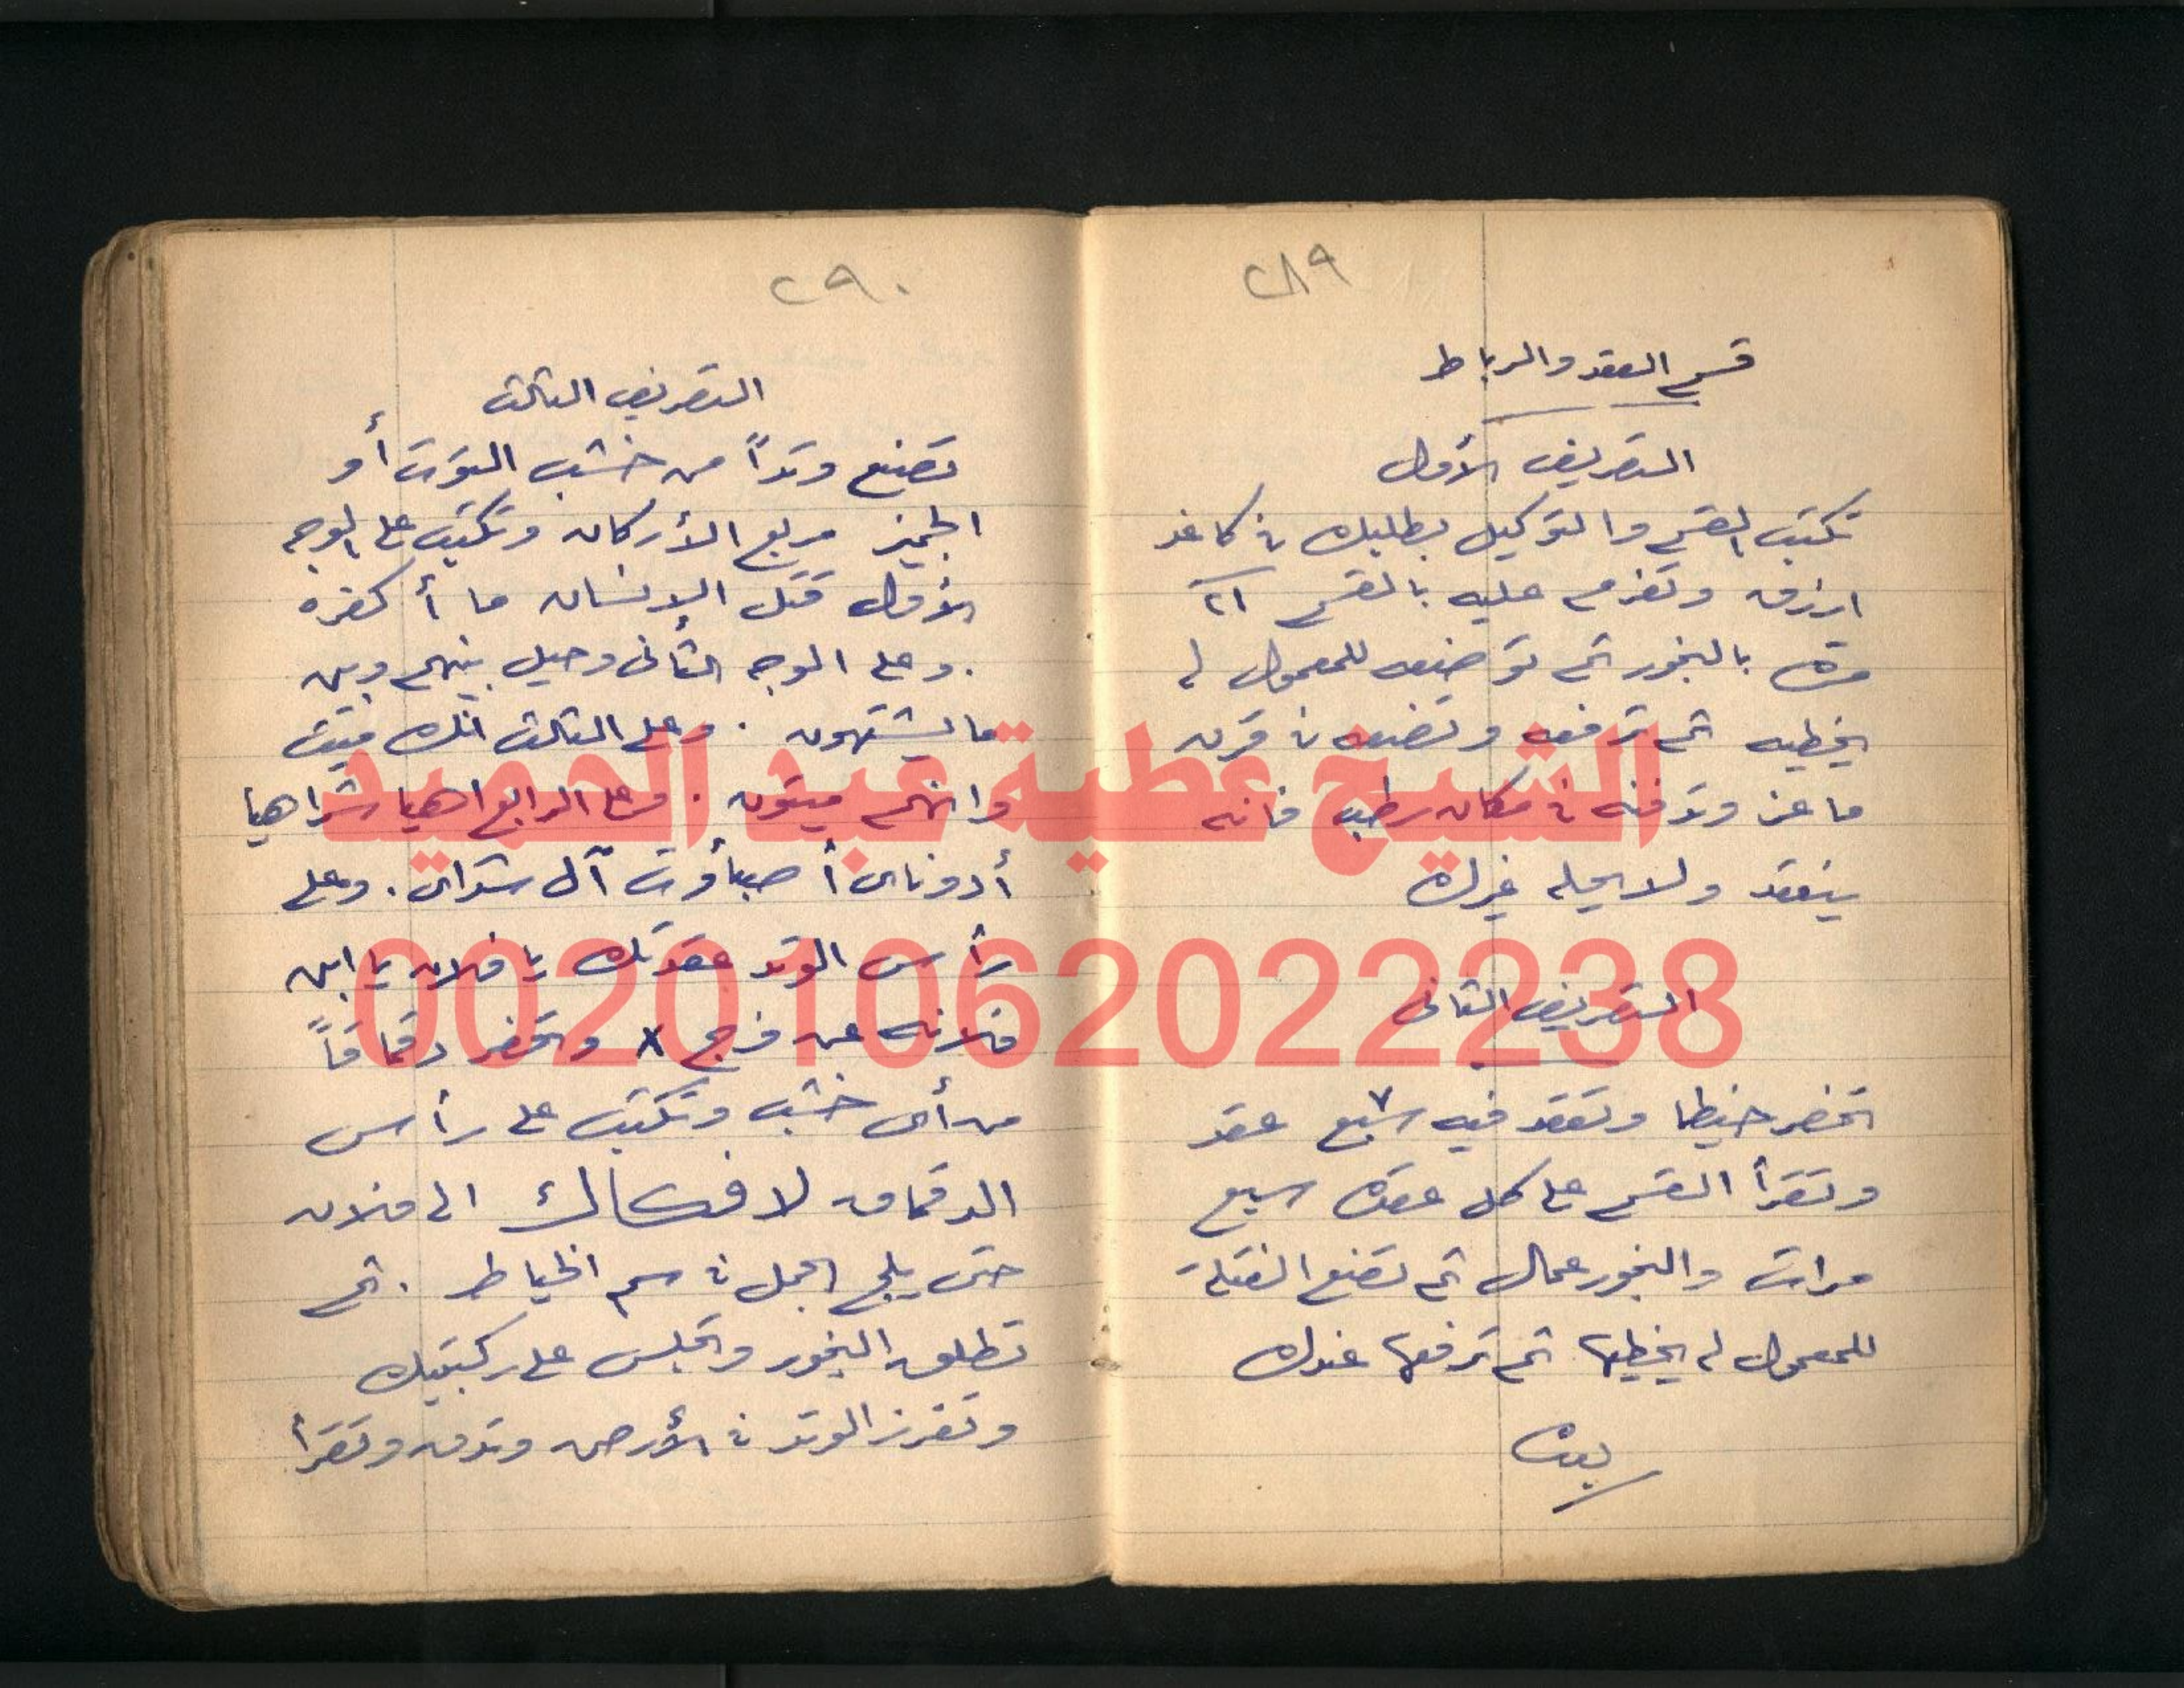 ٢٨٩
قسم العقد والرباط
التصريف الأول
تكتب القسم والتوكيل بطلبك في كاغد
ازرق وتعزم عليه بالقسم ٢١
مرة بالبخور ثم توضعه للمعمول له
يخطيه ثم ترفعه وتضعه في قرن
ماعز وتدفنه في مكان رطب فانه
ينعقد ولا يحله غيرك
التصريف الثانى
تحضر خيطا وتعقد فيه سبع ٧ عقد
وتقرأ القسم على كل عقدة سبع
مرات والبخور عمال ثم تضع الفتلة
للمعمول له يخطيها ثم ترفعها عندك
٢٩٠
التصريف الثالث
تصنع وتداً من خشب التوت أو
الجميز مربع الأركان وتكتب على الوجه
الأول قتل الإنسان ما أكفره
. وعلى الوجه الثانى وحيل بينهم وبين
ما يشتهون . وعلى الثالث انك ميت
وانهم ميتون . وعلى الرابع اهيا شراهيا
أدوناى أصبأوت آل شداى . وعلى
رأس الوتد عقدتك يا فلان يا ابن
فلانه عن فرج x وتحضر دقماقاً
من أى خشب وتكتب على رأس
الدقماق لا فكاك الى فلان
حتى يلج الجمل في سم الخياط . ثم
تطلق البخور وتجلس على ركبتيك
وتغرز الوتد في الأرض وتدق وتقرأ
الشيخ عطية عبد الحميد
00201062022238